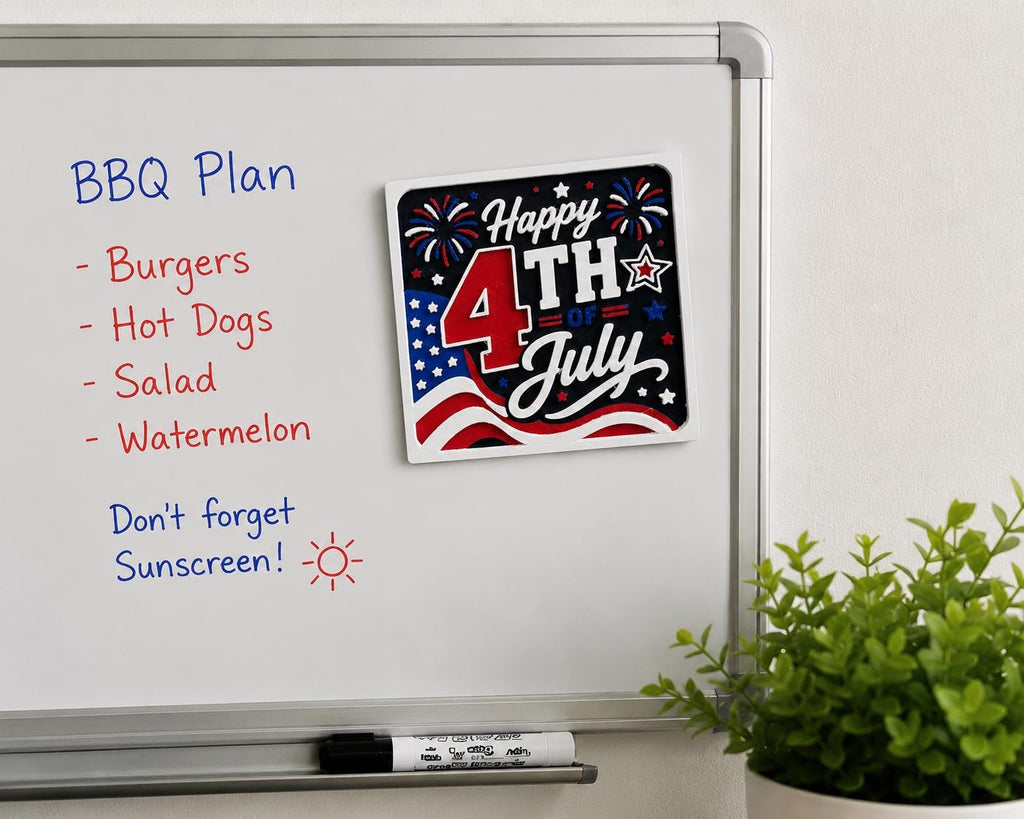 BBQ Plan
- Burgers
- Hot Dogs
- Salad
- Watermelon
Don't forget
Sunscreen!
Happy
4TH
OF
July